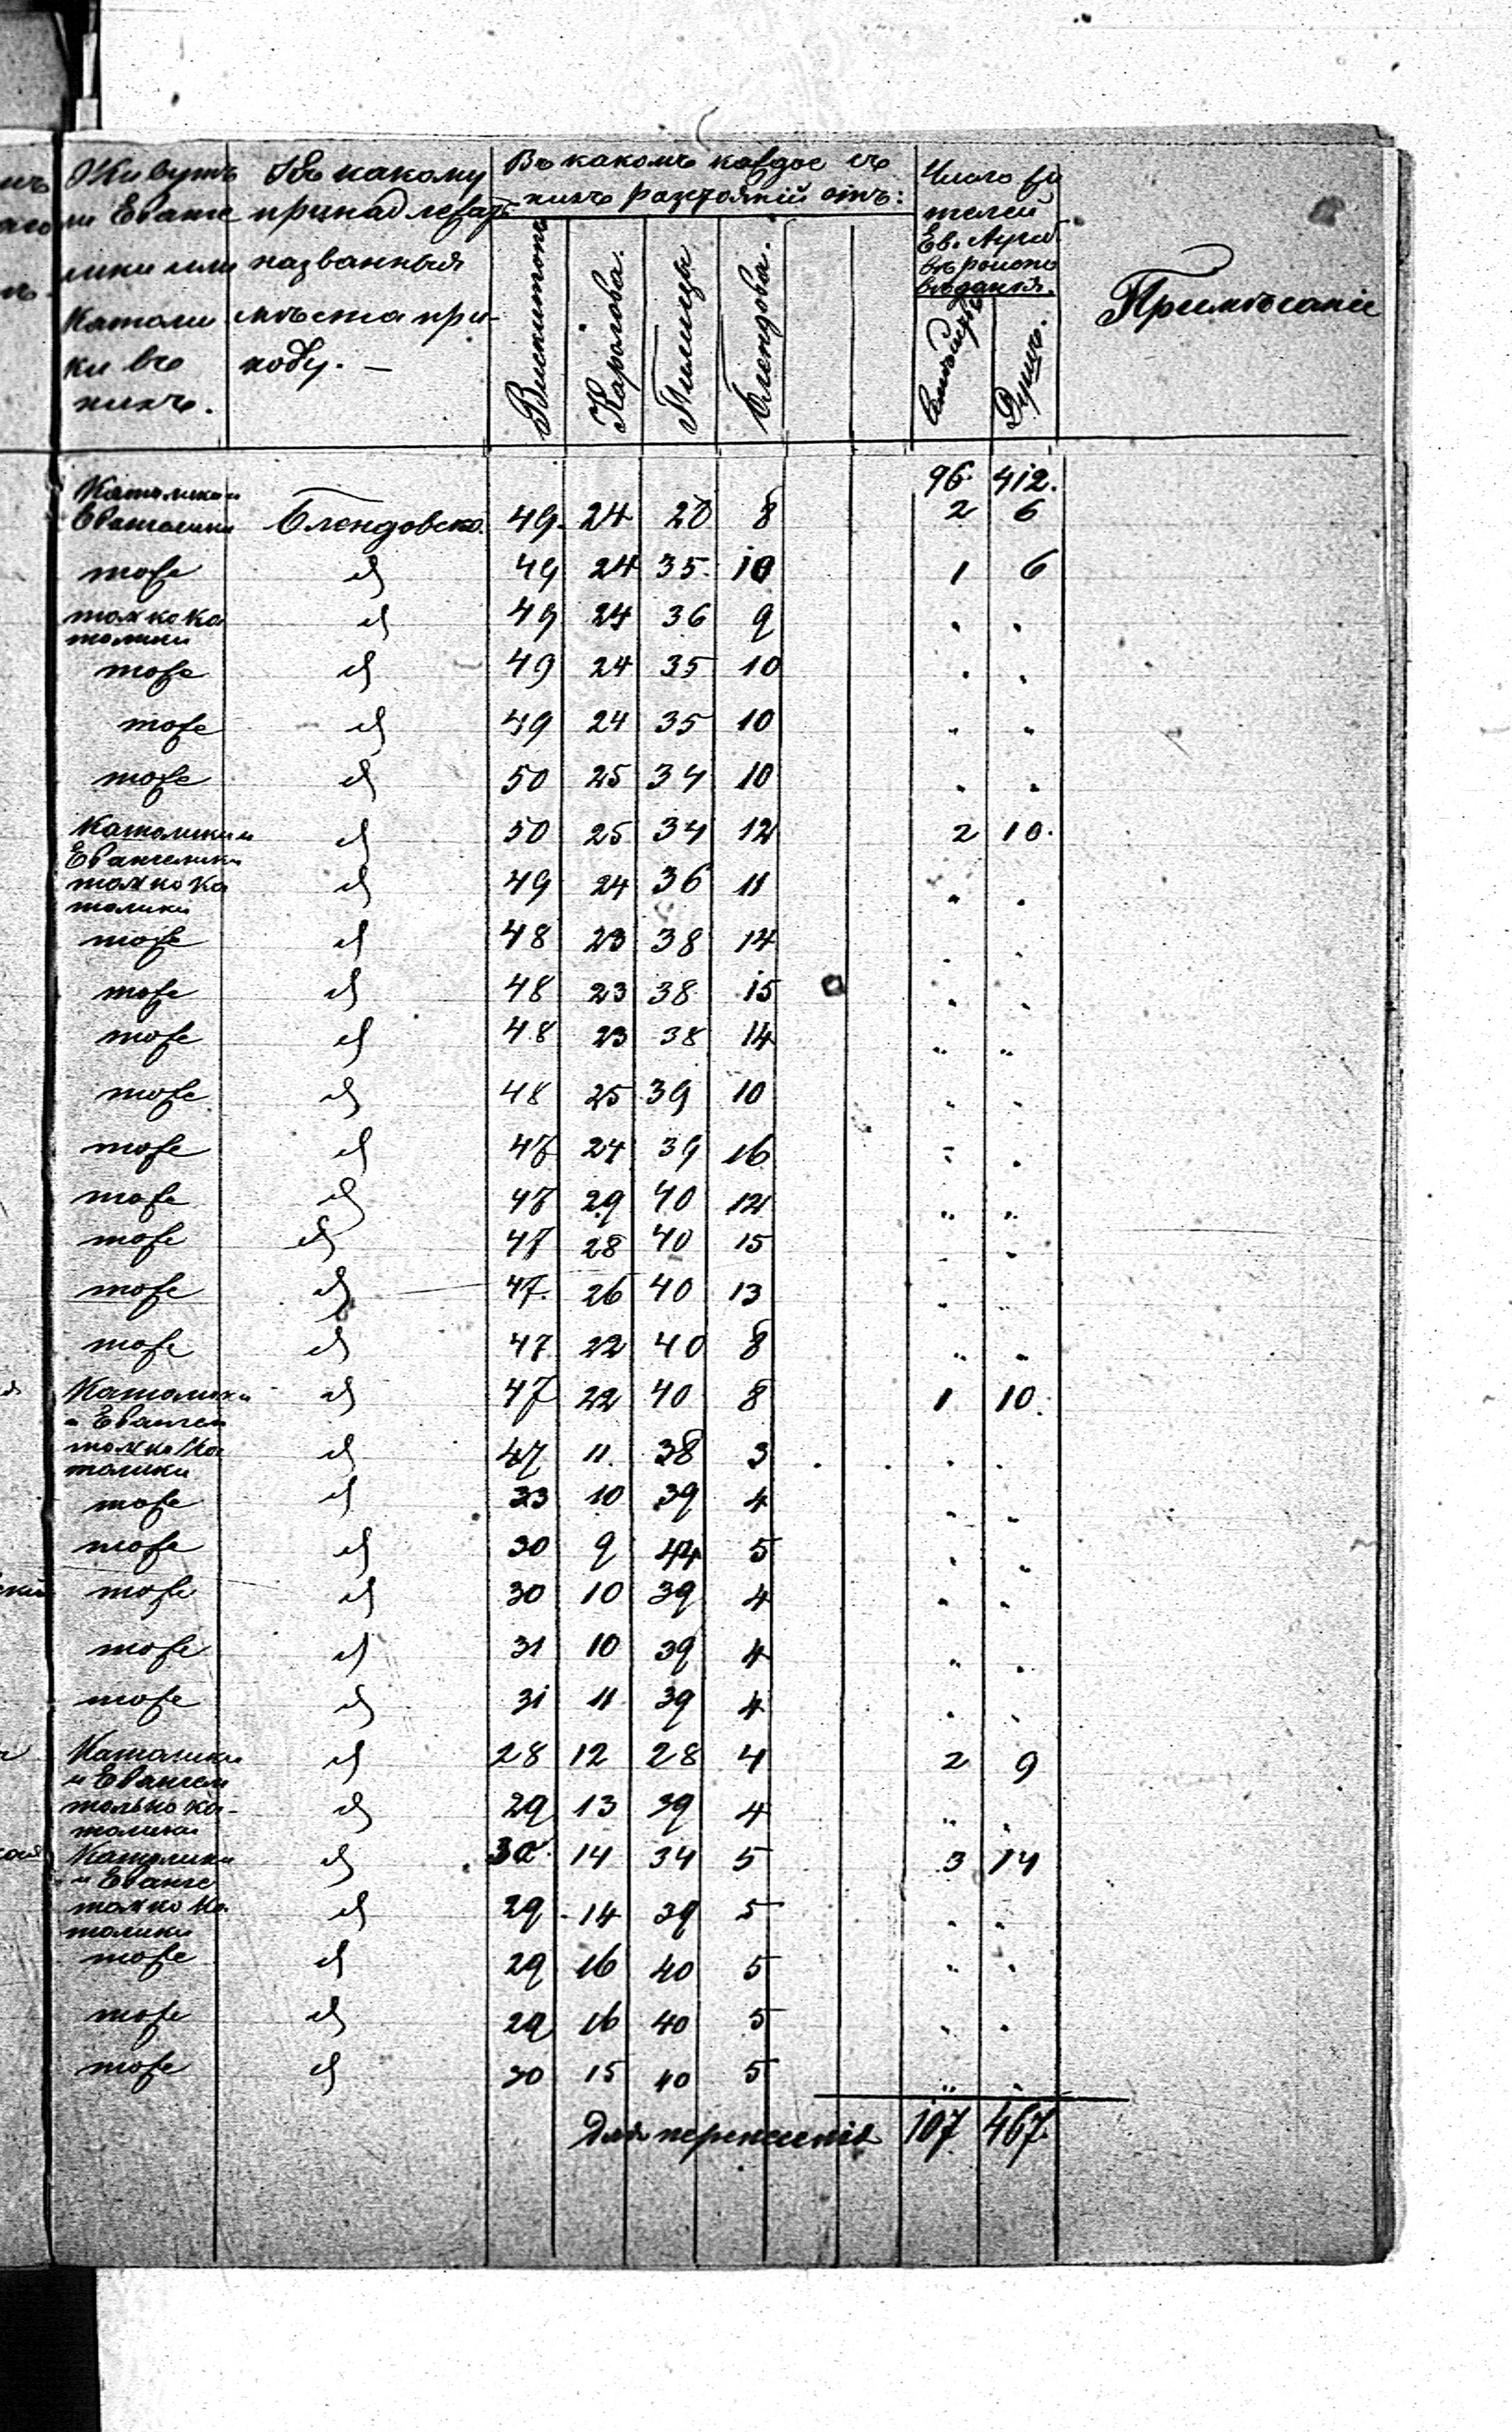 Живутъ
ли Еванге
лики или
Католи
ки въ
нихъ.
Къ какому
принадлежатъ
названныя
мѣста при-
ходу. —
Въ какомъ каждое съ
нихъ разстояніи отъ:
Вискитокъ
Каролева.
Пилицы
Блендова.
Число жи
телей
Ев. Аугсб.
вѣроиспо
вѣданія.
Семействъ
Душъ.
Примѣчаніе
96. 412.
Католики и
Евангелики Блендовско. 49. 24 28 8 2 6
тоже " 49 24 35. 10 1 6
только Ка
толики " 49 24 36 9 " "
тоже " 49 24 35 10 " "
тоже " 49 24 35 10 " "
тоже " 50 25 34 10 " "
Католики и
Евангелики " 50 25 34 12 2 10.
только Ка
толики " 49 24 36 11 " "
тоже " 48 23 38 14 " "
тоже " 48 23 38 15 " "
тоже " 48 23 38 14 " "
тоже " 48 25 39 10 " "
тоже " 47 24 39 16 " "
тоже " 47 29 40 12 " "
тоже " 47 28 40 15 " "
тоже " 47. 26 40 13 " "
тоже " 47 22 40 8 " "
Католики
и Евангел " 47 22 40 8 1 10.
только Ка
толики " 47 11. 38 3 " "
тоже " 33 10 39 4 " "
тоже " 30 9 44 5 " "
тоже " 30 10 39 4 " "
тоже " 31 10 39 4 " "
тоже " 31 11 39 4 " "
Католики
и Евангели " 28 12 28 4 2 9
только ка-
толики " 29 13 39 4 " "
Католики
и Еванге " 30 14 34 5 3 14
только Ка
толики " 29 14 39 5 " "
тоже " 29 16 40 5 " "
тоже " 29 16 40 5 " "
тоже " 30 15 40 5 " "
Для перенесенія 107 467.